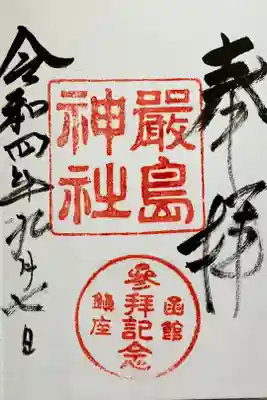 奉拝
嚴島
神社
函館
參拜記念
鎮座
令和四年九月七日